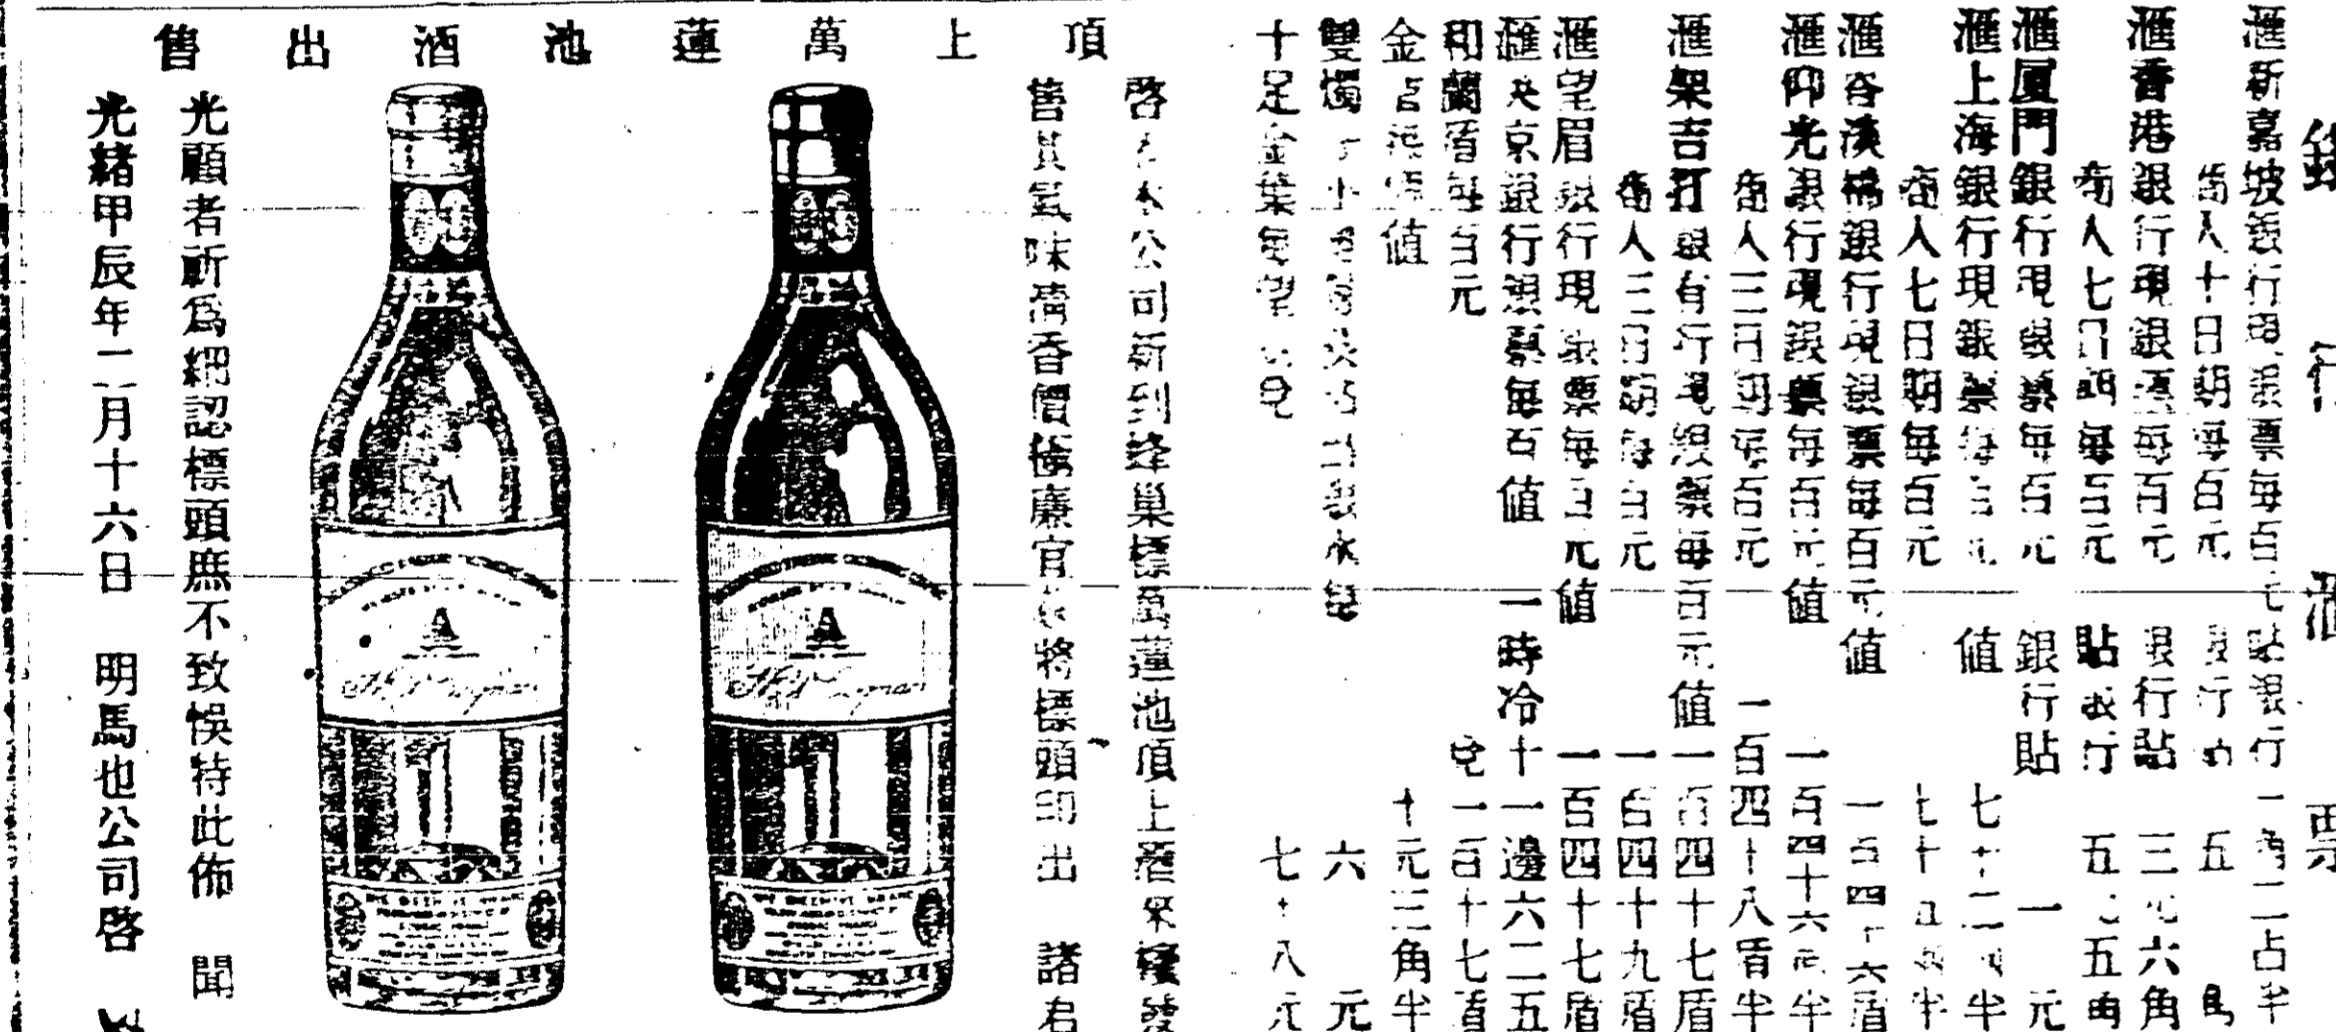 銀行滙票
滙新嘉坡銀行現銀票每百元貼銀行一角二占半
商人十日期每百元 銀行貼 五
滙香港銀行現銀票每百元 銀行貼 三元六角
商人七日期每百元 貼銀行 五元五角
滙厦門銀行現銀票每百元 銀行貼 一元
滙上海銀行現銀票每百元 值 七十二 半
商人七日期每百元 七十五 半
滙谷溪 銀行現銀票每百元值 一百四十六盾
滙仰光銀行現銀票每百元值 一百四十六盾半
商人三日期每百元 一百四十八盾半
滙架吉打銀行現銀票每百元值 一百四十七盾
商人三日期每百元 一百四十九盾
滙望眉銀行現銀票每百元值 一百四十七盾
滙英京銀行現銀票每百值 一時冷十一邊六二五
和蘭盾每百元 兌一百十七盾
金 值 十元三角半
雙燭 每 六元
十足金葉每 兌 七十八元
頂上萬蓮池酒出售
啓者本公司新到蜂巢標萬蓮池頂上酒 發
售其氣味清香價極廉宜 將標頭印出 諸君
光顧者祈爲細認標頭庶不致悞特此佈 聞
光緒甲辰年二月十六日 明馬也公司啓